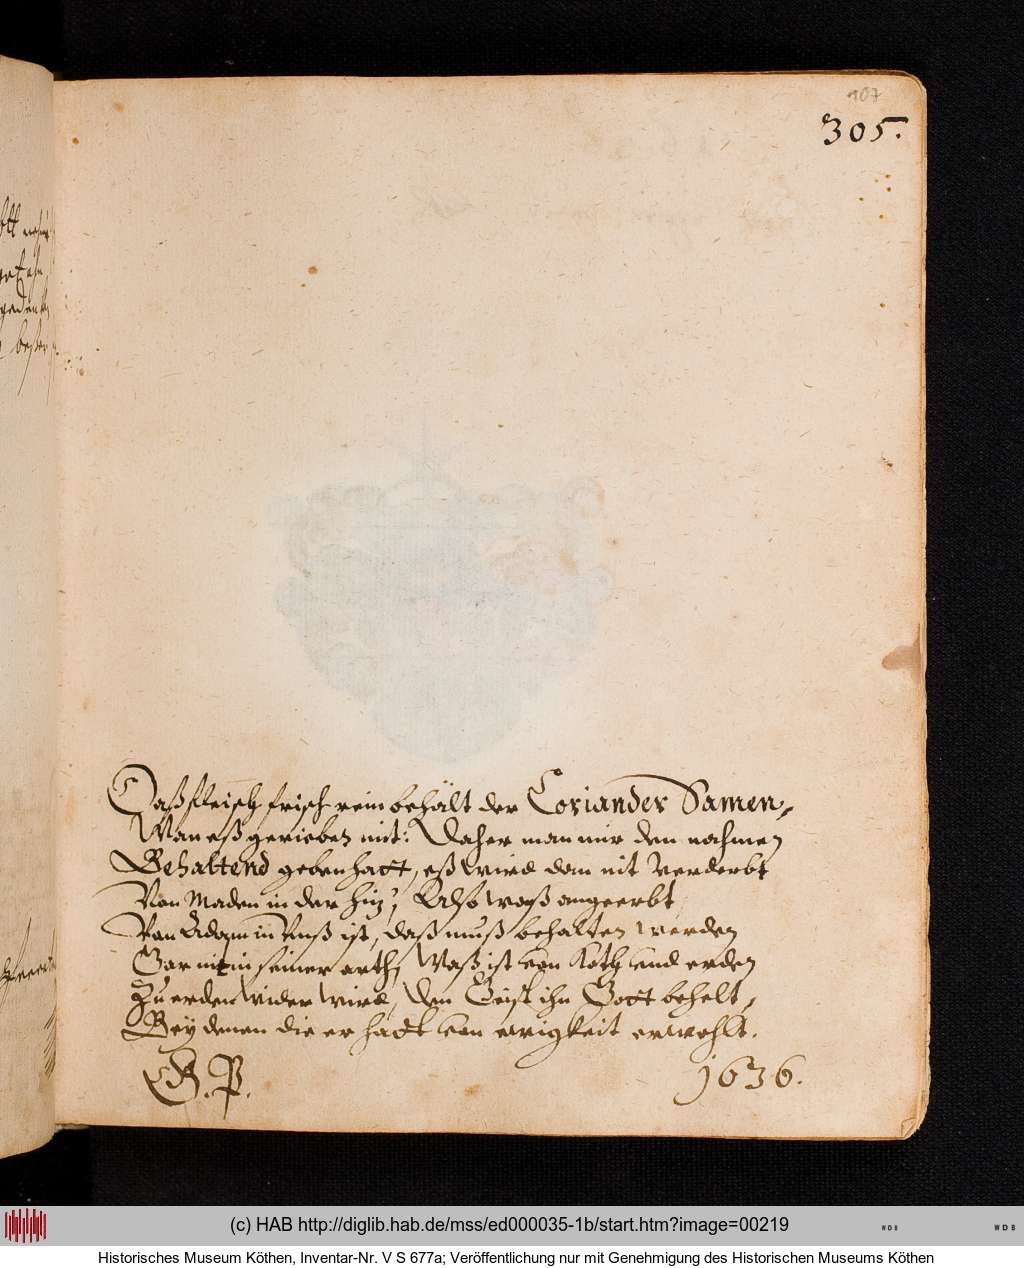 107
305.
Daß fleisch frisch rein behält der Coriander Samen,
Wan eß gerieben mit: Daher man mir den nahmen
Behaltend geben hatt, eß wird dan nit verderbt
Von Maden in der hitz; Also waß angeerbt
Von Adam in Unß ist, daß muß behalten werden
Gar nit in seiner arth, Waß ist von Koth und erden
Zu erden wider wird, den Geist ihn Gott behelt,
Bey denen die er hatt von ewigkeit erwehlt.
G. P. 1636.
(c) HAB http://diglib.hab.de/mss/ed000035-1b/start.htm?image=00219
WDB
WDB
Historisches Museum Köthen, Inventar-Nr. V S 677a; Veröffentlichung nur mit Genehmigung des Historischen Museums Köthen